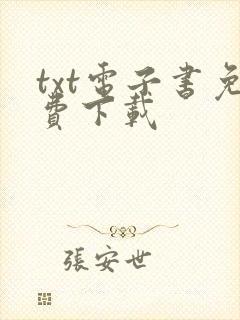 txt電子書免
費下載
張安世